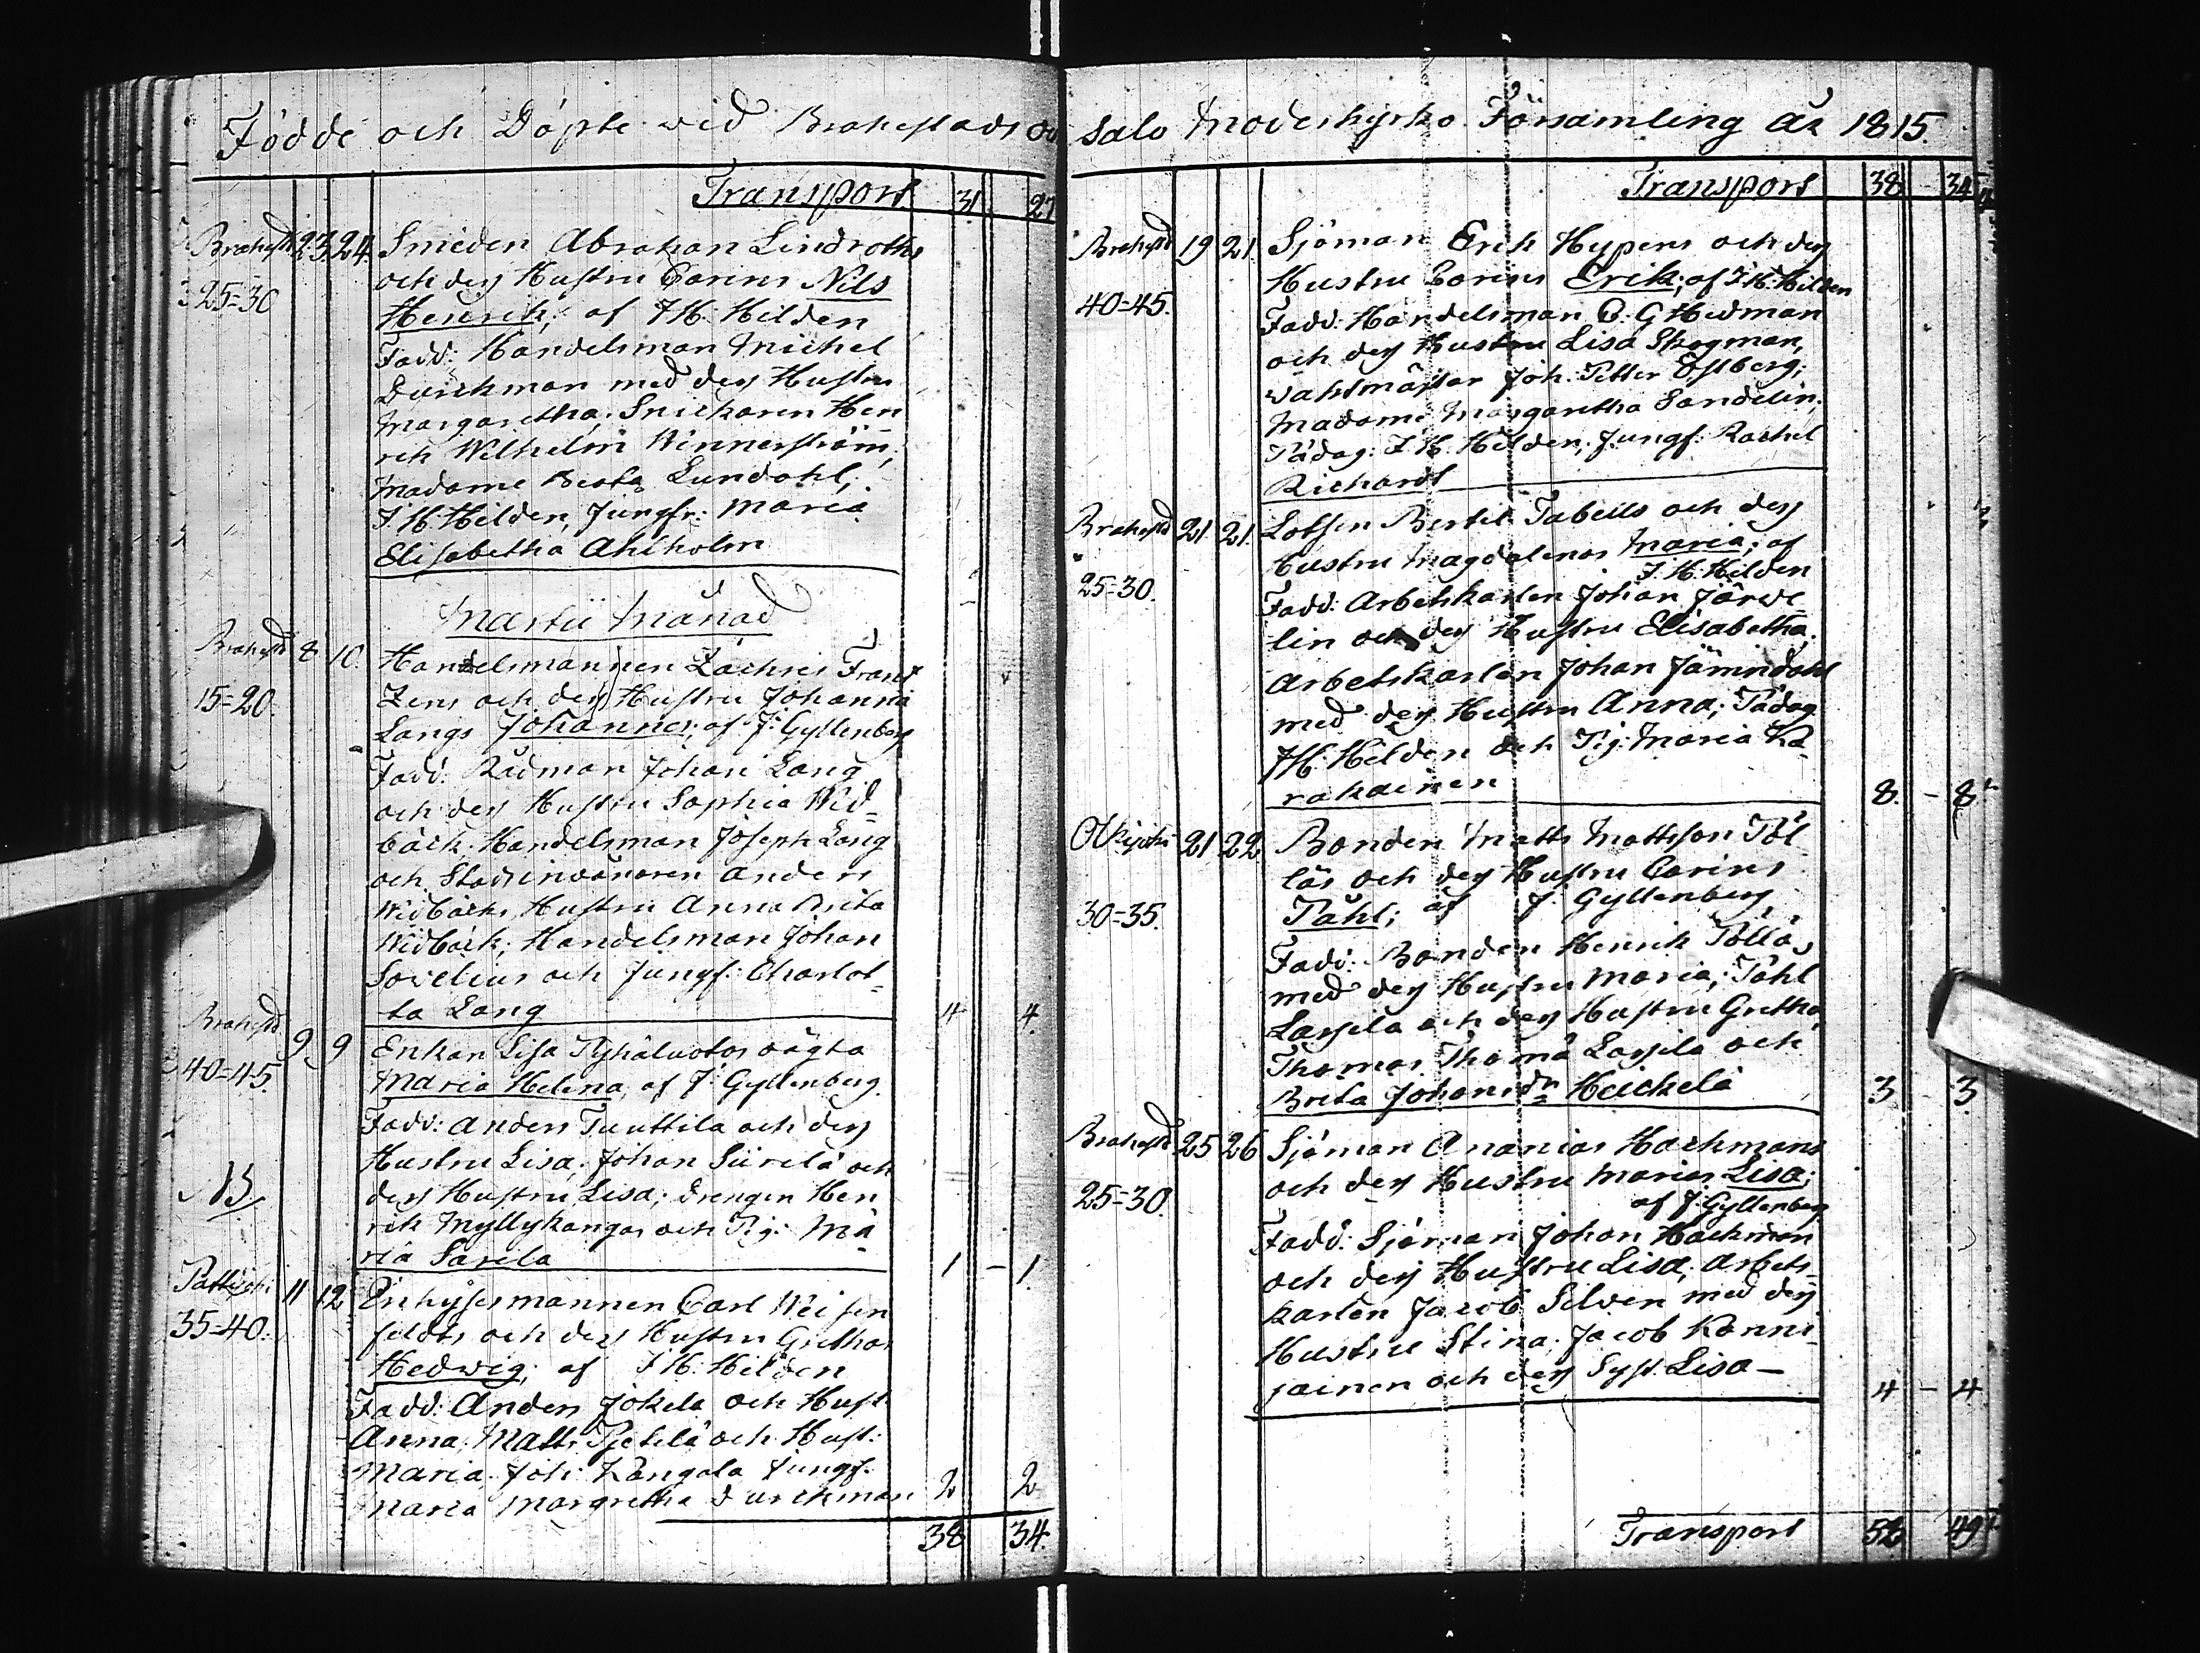 Födde och Döpte wid Brahestads och
Transport 31 27
Brahestd 23. 24. Smeden Abraham Lindroths
och des Hustru Carins Nils
25=30 Henrik; af J H: Hilden
Fadd: Handelsman Michel
Durchman med des Hustru
Margaretha. Snickaren Hen
rik Wilhelm Winnerström,
Madame Beata Lundahl,
J: H: Hilden, Jungfr: Maria
Elisabetha Ahlholm
Martii Månad
Brahestd 8 10. Handelsmannen Zachris Frant
15=20. zens och des Hustru Johanna
Langs Johannes; af J: Gyllenberg
Fadd: Rådman Johan Lang
och des Hustru Sophia Wid=
bäck. Handelsman Joseph Lang
och Stadsinvånaren Anders
Widbäcks Hustru Anna Brita
Widbäck; Handelsman Johan
Sovelius och Jungf: Charlot=
ta Lang 4 4.
Brahestd 9 9 Enkan Lisa Pyhäluotos oägta
40=45. Maria Helena, af J: Gyllenberg.
Fadd: Anders Tuuttila och des
Hustru Lisa. Johan Siirelä och
NB des Hustru Lisa; drengen Hen
rik Myllykangas och Pig: Ma
ria Sarela 1 - 1.
Pattijoki 11 12 Inhysesmannen Carl Weisen
35=40. feldts och des Hustru Grethas
Hedwig; af J H: Hilden
Fadd: Anders Jokela och Hust:
Anna; Matts Pietilä och Hust:
Maria. Joh: Kangala Jungf:
Maria Margretha Durchman 2 2
38 34.
Salo Moderkyrko Församling År 1815.
Transport 38 - 34
Brahestd 19 21. Sjöman Erik Hypens och des
Hustru Carins Erik; af J: H: Hilden
40=45. Fadd: Handelsman C: G Hedman
och des Hustru Lisa Skogman,
Vaktmästar Joh: Petter Östberg;
Madame Margaretha Sandelin;
Pädag: J H: Hilden; Jungf: Rachel
Richardt
Brahestd 21 21. Lotsen Bertil Tabells och des
Hustru Magdalenas Maria; af
J: H: Hilden
25=30. Fadd: Arbetskarlen Johan Järwe
lin och des Hustru Elisabetha.
Arbetskarlen Johan Jämindahl
med des Hustru Anna; Pädag
J H: Hilden och Pig: Maria Ka
rakainen 8. - 8
Olkijoki 21 22 Bonden Matts Mattsson Pöl
läs och des Hustru Carins
30=35. Påhl; af J: Gyllenberg
Fadd: Bonden Henrik Pöllä,
med des Hustru Maria; Påhl
Lassila och des Hustru Gretha,
Thomas Thomä Lassila och
Brita Johansdr Heickelä 3 3.
Brahestd 25 26 Sjöman Ananias Hackmans
och des Hustru Marias Lisa;
25=30. af J: Gyllenberg
Fadd: Sjöman Johan Hackman
och des Hustru Lisa; Arbets
karlen Jacob Silven med des
Hustru Stina. Jacob Kanni
jainen och des Syst. Lisa -
4 - 4
Transport 53 49